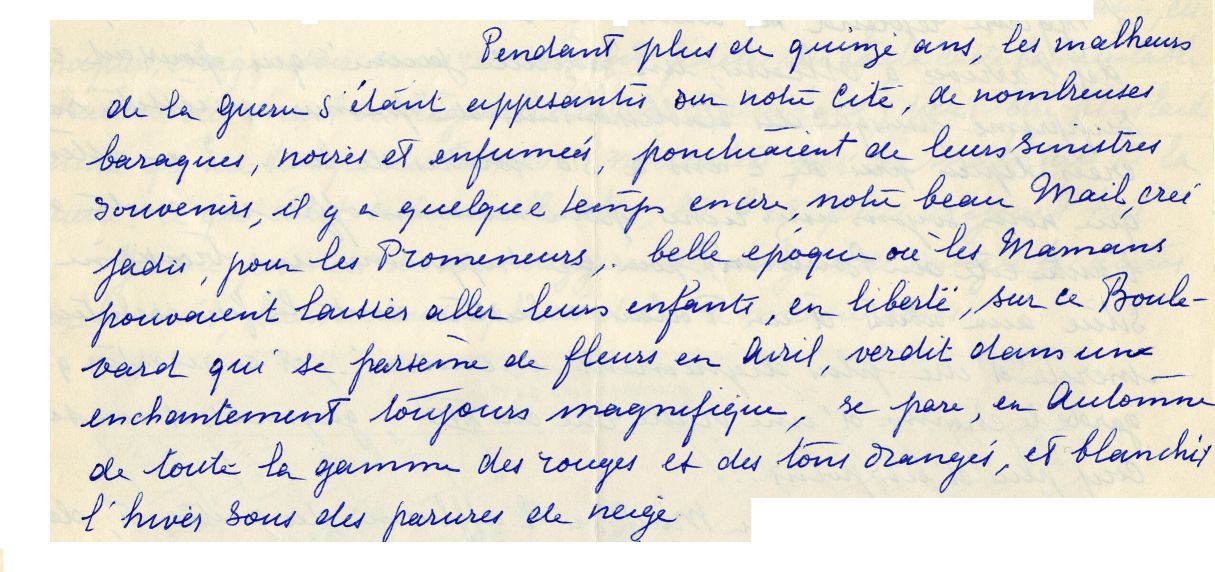 Pendant plus de quinze ans, les malheurs
de la guerre s'étant appesantis sur notre Cité, de nombreuses
baraques, noires et enfumées, ponctuaient de leurs sinistres
souvenirs, il y a quelque temps encore, notre beau Mail, créé
jadis, pour les Promeneurs, belle époque où les Mamans
pouvaient laisser aller leurs enfants, en liberté, sur ce Boule-
vard qui se parsème de fleurs en Avril, verdit dans une
enchantement toujours magnifique, se pare, en Automne
de toute la gamme des rouges et des tons orangés, et blanchit
l'hiver sous des parures de neige